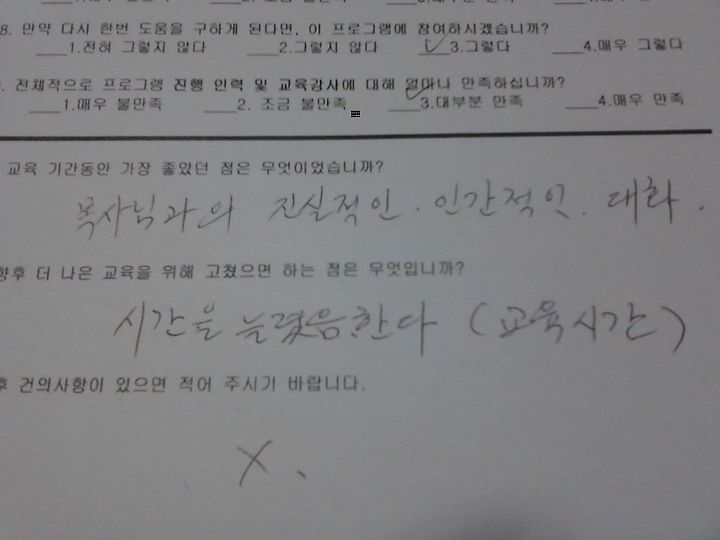 8. 만약 다시 한번 도움을 구하게 된다면, 이 프로그램에 참여하시겠습니까?
___1.전혀 그렇지 않다 ___2.그렇지 않다 _✓_3.그렇다 ___4.매우 그렇다
. 전체적으로 프로그램 진행 인력 및 교육강사에 대해 얼마나 만족하십니까?
___1.매우 불만족 ___2. 조금 불만족 _✓_3.대부분 만족 ___4.매우 만족
교육 기간동안 가장 좋았던 점은 무엇이었습니까?
목사님과의 진실적인. 인간적인. 대화.
향후 더 나은 교육을 위해 고쳤으면 하는 점은 무엇입니까?
시간을 늘렸음한다 (교육시간)
후 건의사항이 있으면 적어 주시기 바랍니다.
X.